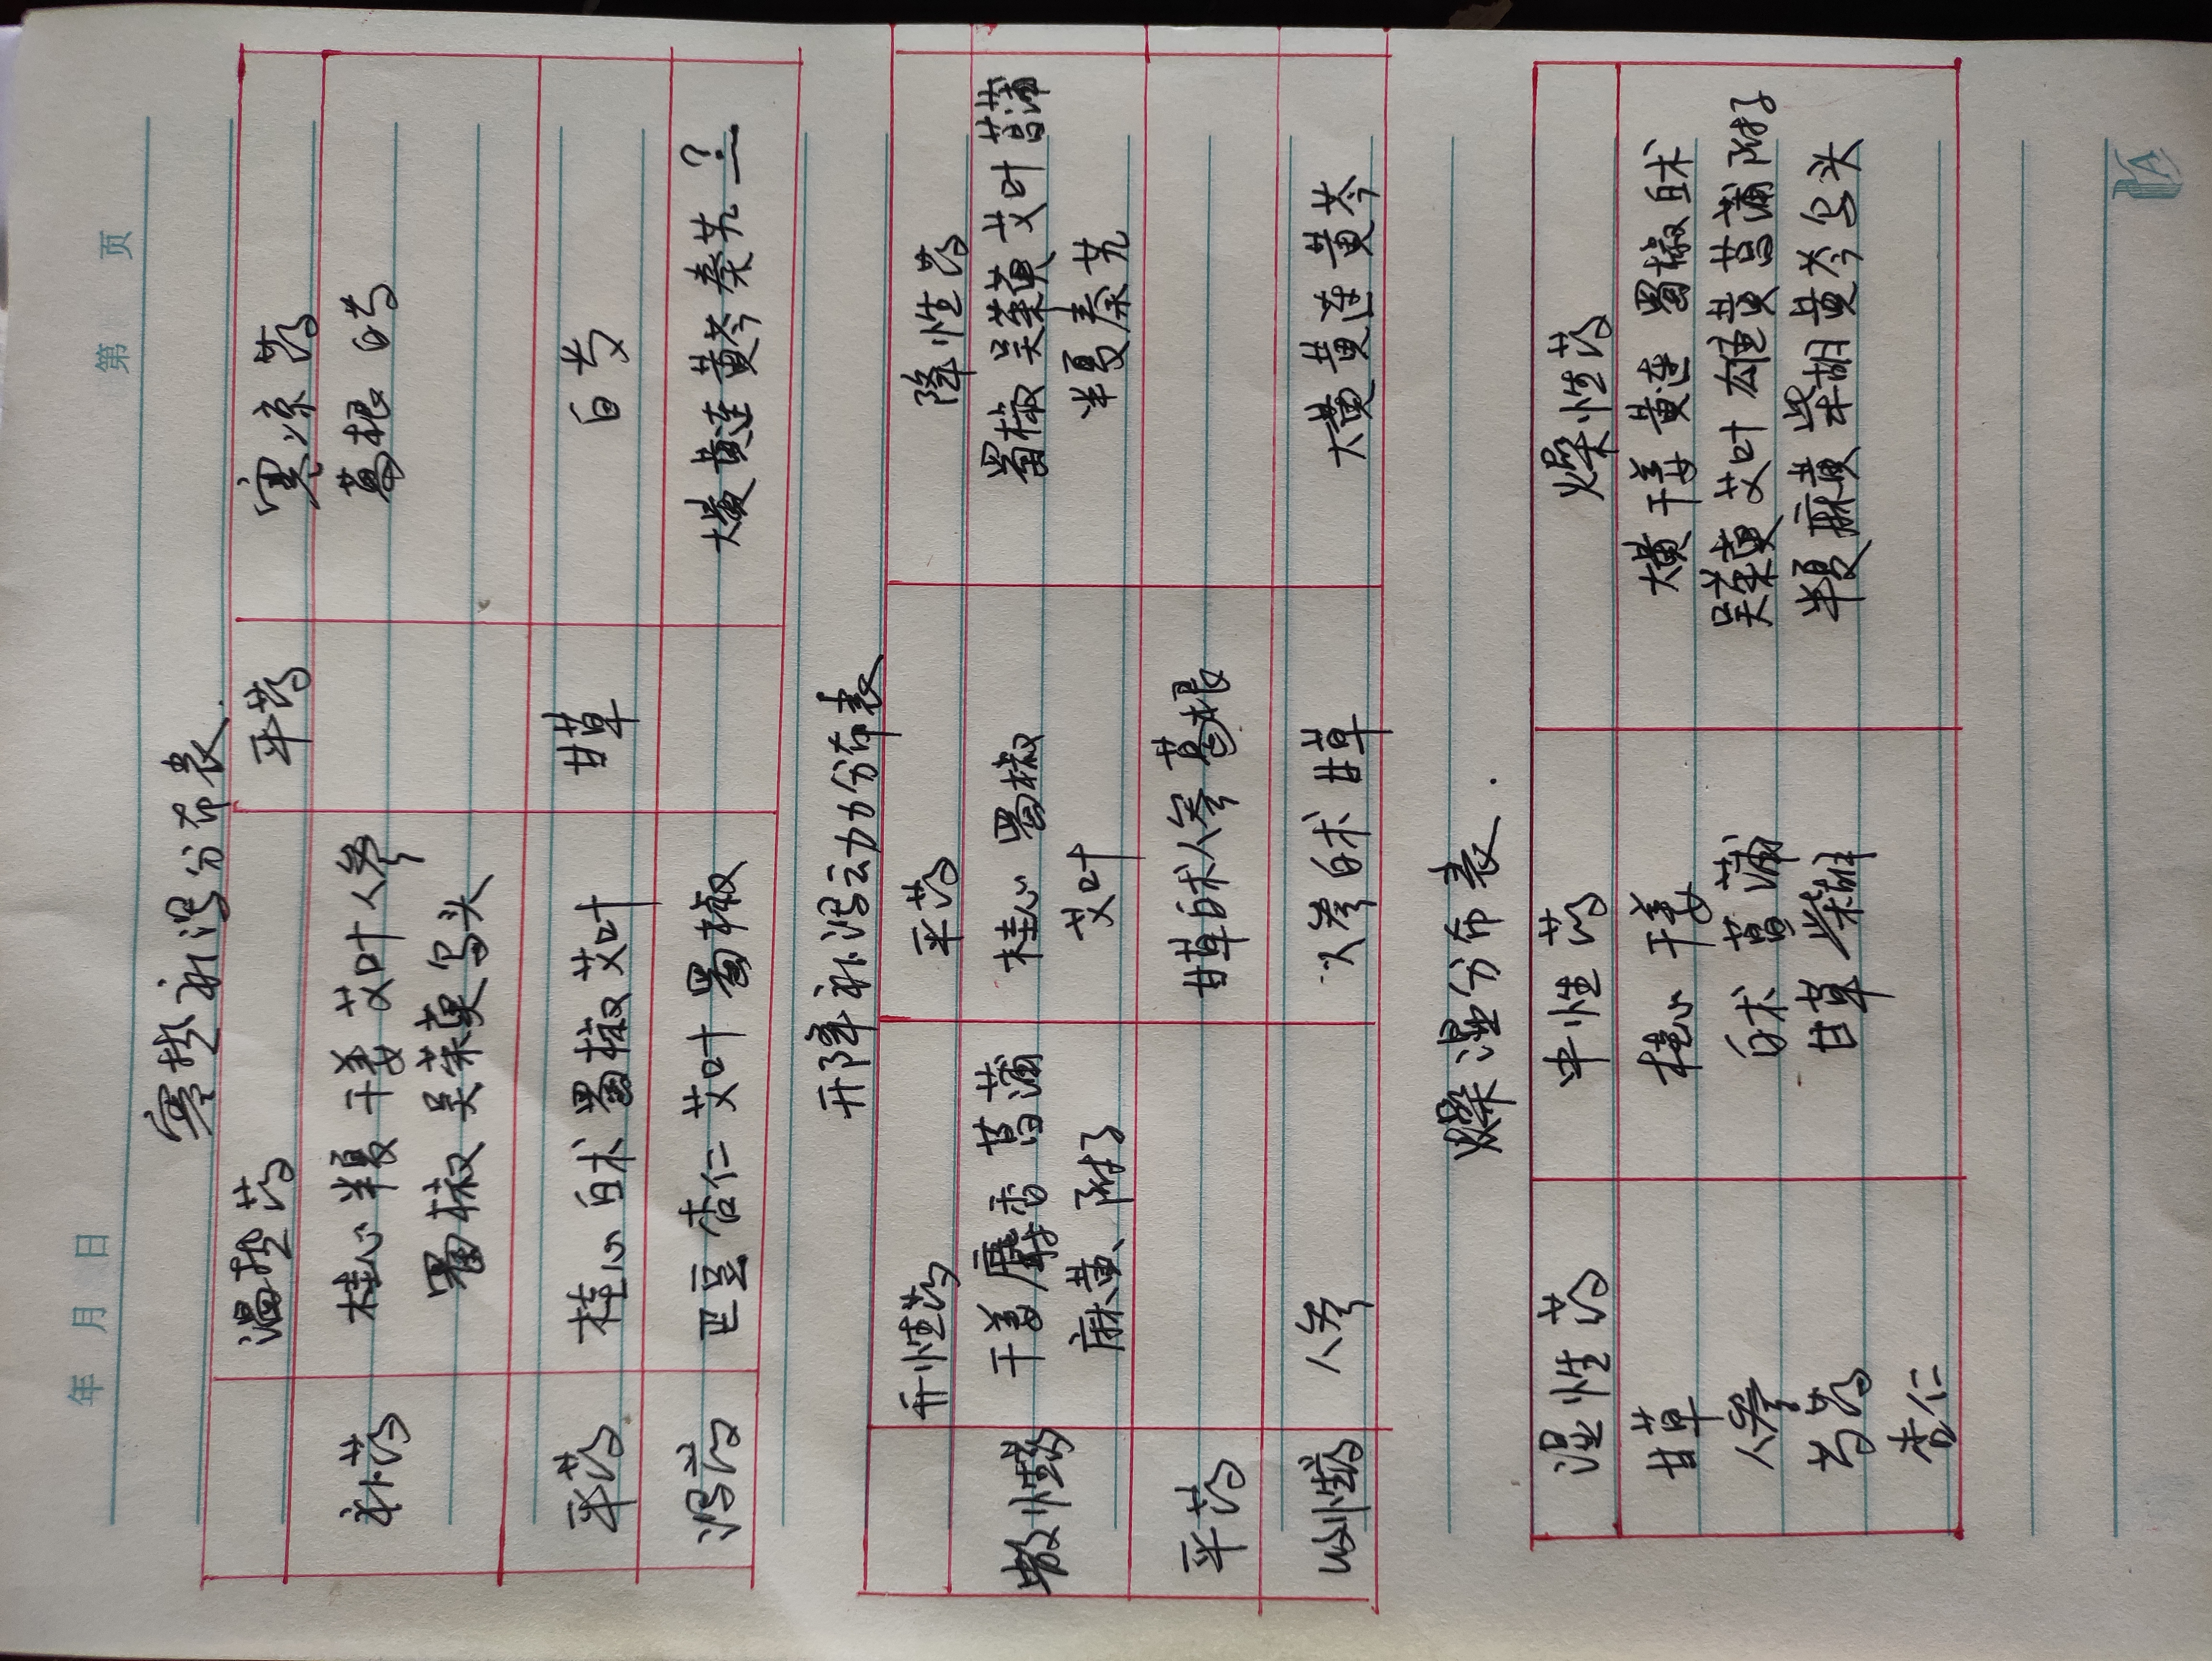 年 月 日 第 页
寒热补泻分布表.
温热药 平药 寒凉药
补药 桂心 半夏 干姜 艾叶 人参 葛根 白芍
蜀椒 吴茱萸 乌头
平药 桂心 白术 蜀椒 艾叶 甘草 白芍
泻药 巴豆 杏仁 艾叶 蜀椒 大黄 黄连 黄芩 秦艽 ?
升降补泻动力分布表
升性药 平药 降性药
散性药 干姜 麝香 菖蒲 桂心 蜀椒 蜀椒 吴茱萸 艾叶 菖蒲
麻黄、附子 艾叶 半夏 秦艽
平药 甘草 白术 人参 葛根
收性药 人参 人参 白术 甘草 大黄 黄连 黄芩
燥湿分布表.
湿性药 中性药 燥性药
甘草 桂心 干姜 大黄 干姜 黄连 蜀椒 白术
人参 白术 菖蒲 吴茱萸 艾叶 雄黄 菖蒲 附子
芍药 甘草 柴胡 半夏 麻黄 柴胡 黄芩 乌头
杏仁